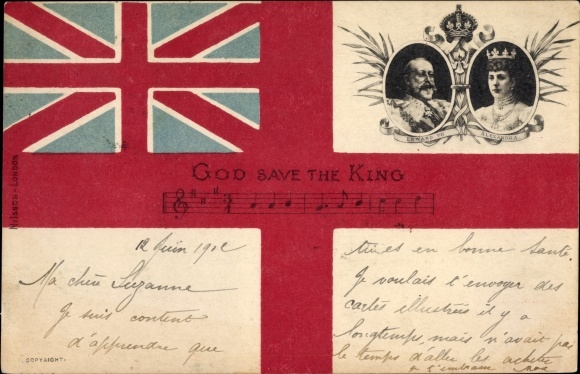 EDWARD VII ALEXANDRA
GOD SAVE THE KING
NISSCH - LONDON
12 Juin 1902
Ma chère Suzanne
Je suis content
d'apprendre que
COPYRIGHT.
tu es en bonne santé.
Je voulais t'envoyer des
cartes illustrées il y a
longtemps, mais n'avait pas
le temps d'aller les acheter